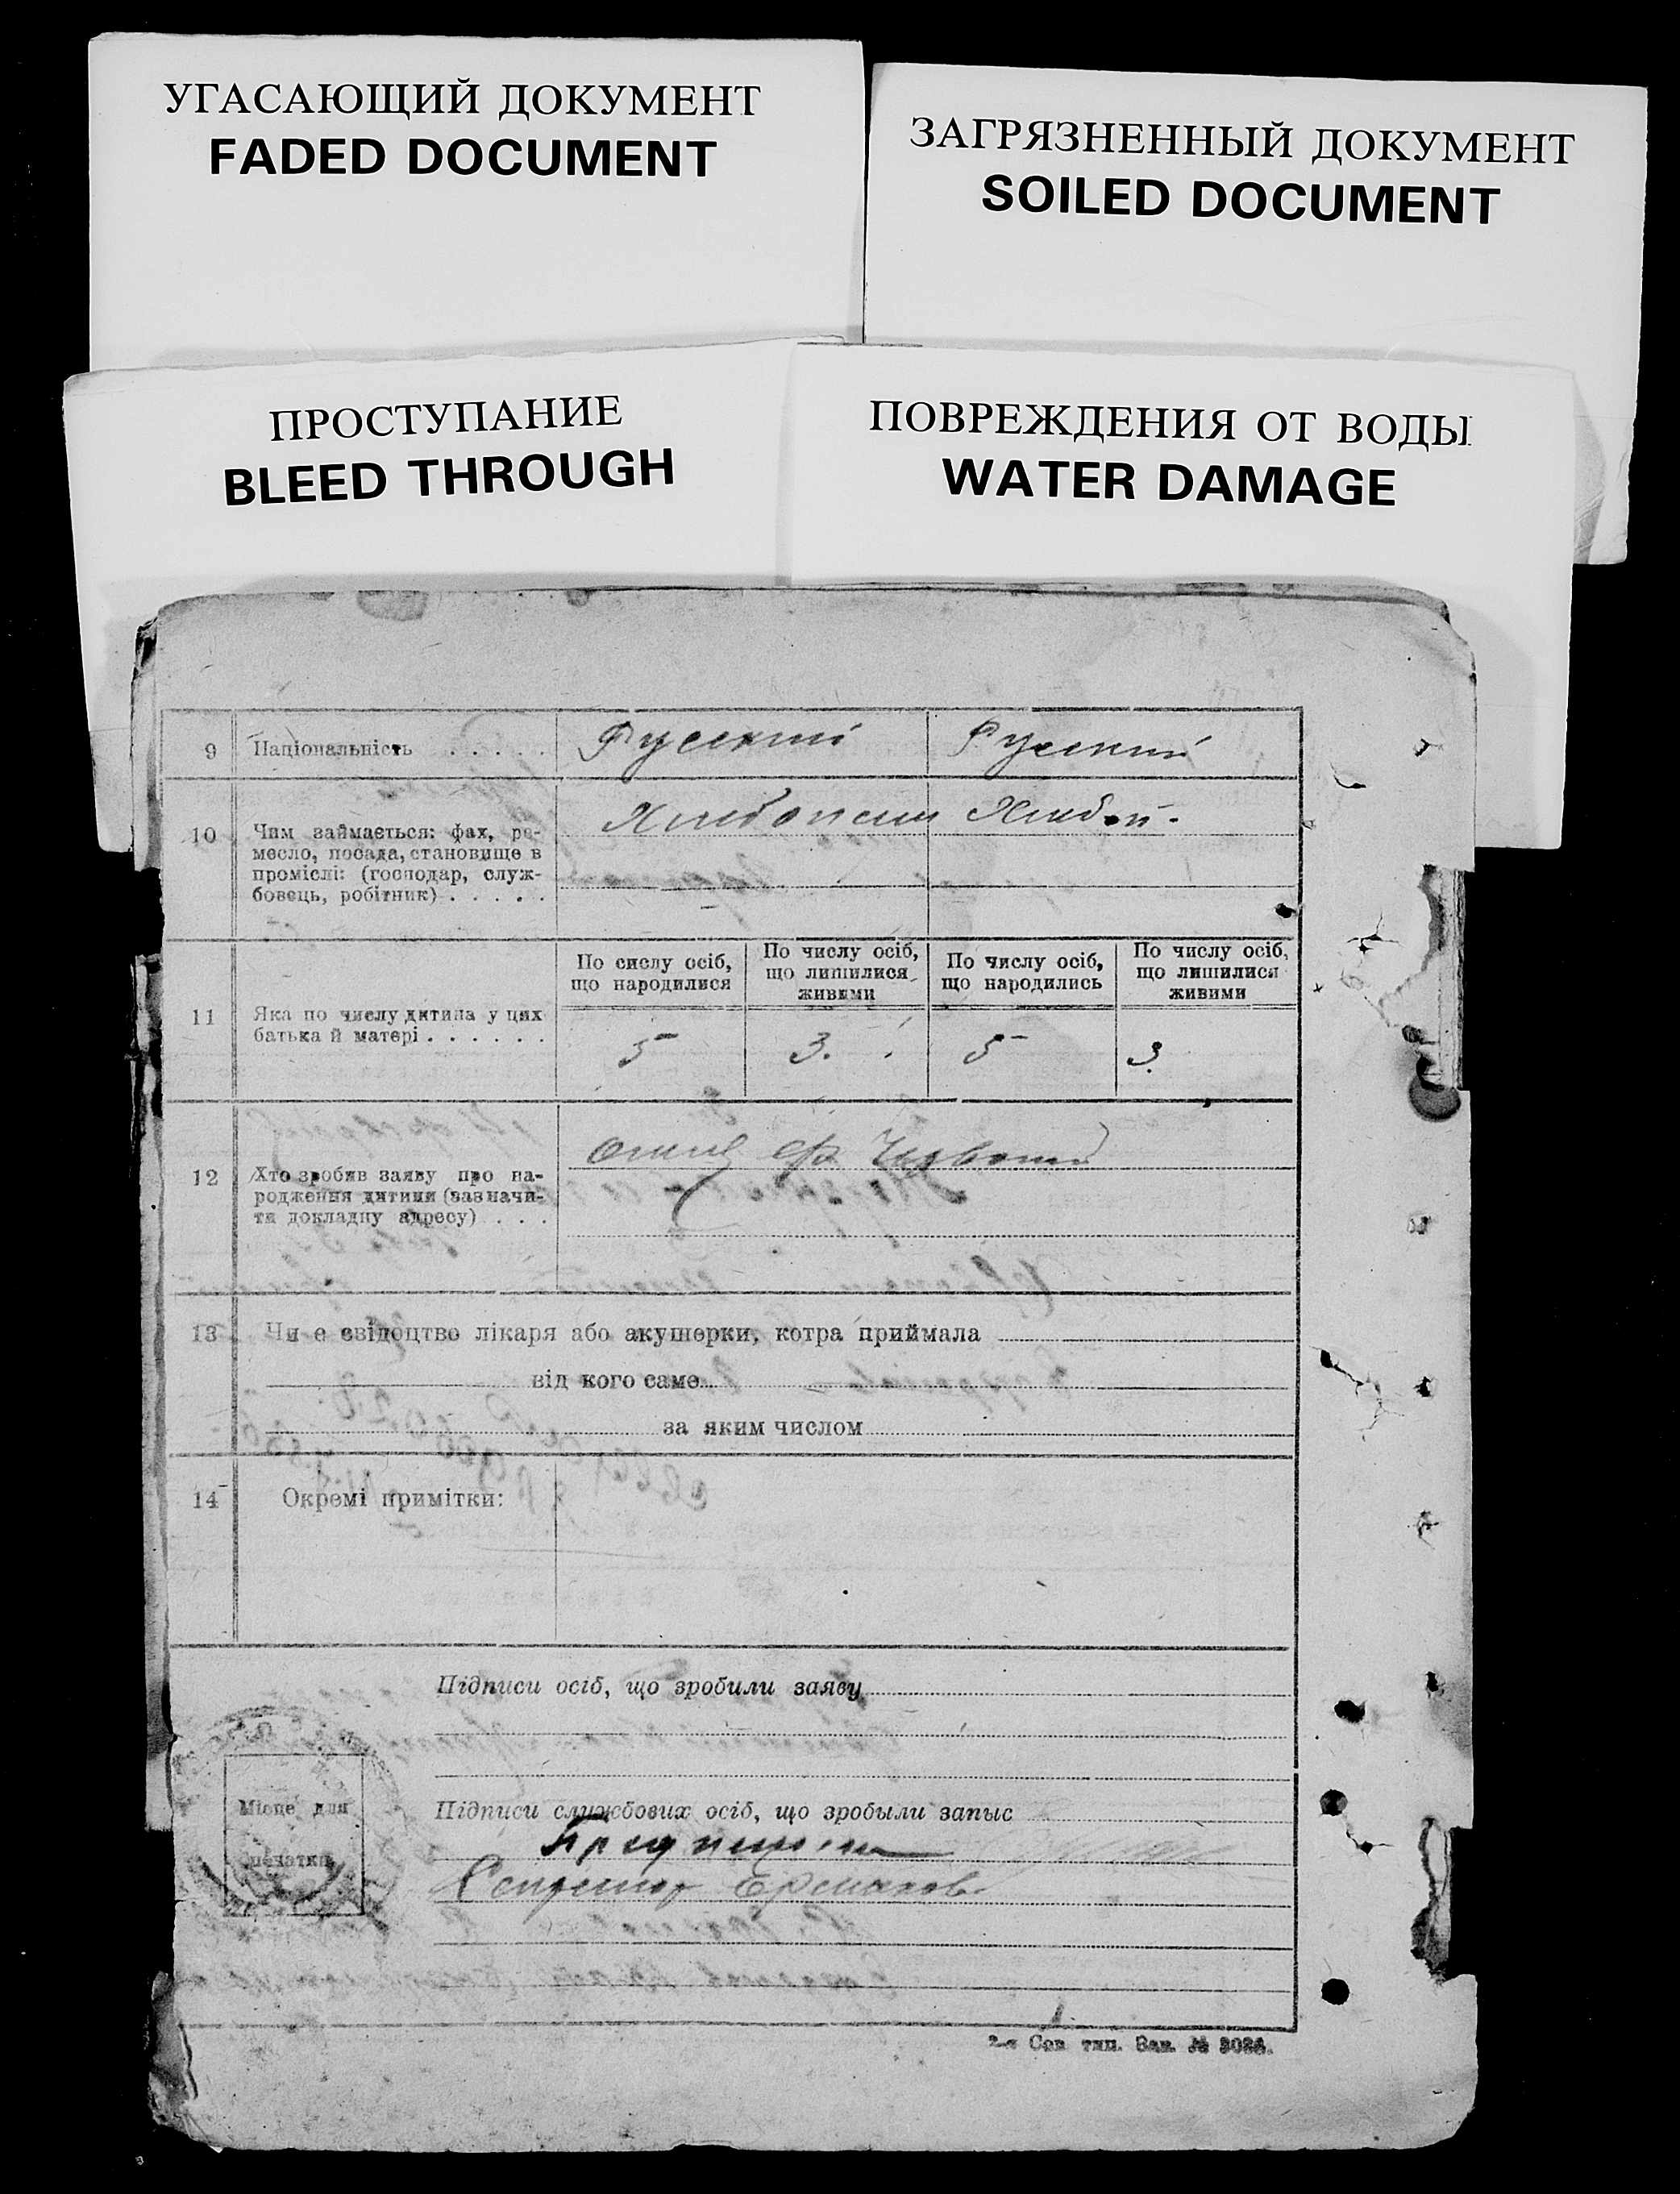 УГАСАЮЩИЙ ДОКУМЕНТ
FADED DOCUMENT
ЗАГРЯЗНЕННЫЙ ДОКУМЕНТ
SOILED DOCUMENT
ПРОСТУПАНИЕ
BLEED THROUGH
ПОВРЕЖДЕНИЯ ОТ ВОДЫ
WATER DAMAGE
9 Національність . . . . . Русский Русский
10 Чим займається: фах, ре-
месло, посада, становище в
промислі: (господар, служ-
бовець, робітник) . . . . .
Хлебопаш Хлебоп.
11 Яка по числу дитина у цих
батька й матері . . . . . .
По сислу осіб,
що народилися
По числу осіб,
що лишилися
живими
По числу осіб,
що народились
По числу осіб,
що лишилися
живими
5 3. 5 3.
12 Хто зробив заяву про на-
родження дитини (зазначи-
ти докладну адресу) . . .
Отец
13 Чи е свідоцтво лікаря або акушерки, котра приймала
від кого саме
за яким числом
14 Окремі примітки:
Підписи осіб, що зробили заяву
Підписи службових осіб, що зробыли запыс
Секретарь Ермаков
Місце для
печатки
2-я Сов тип. Зак. №